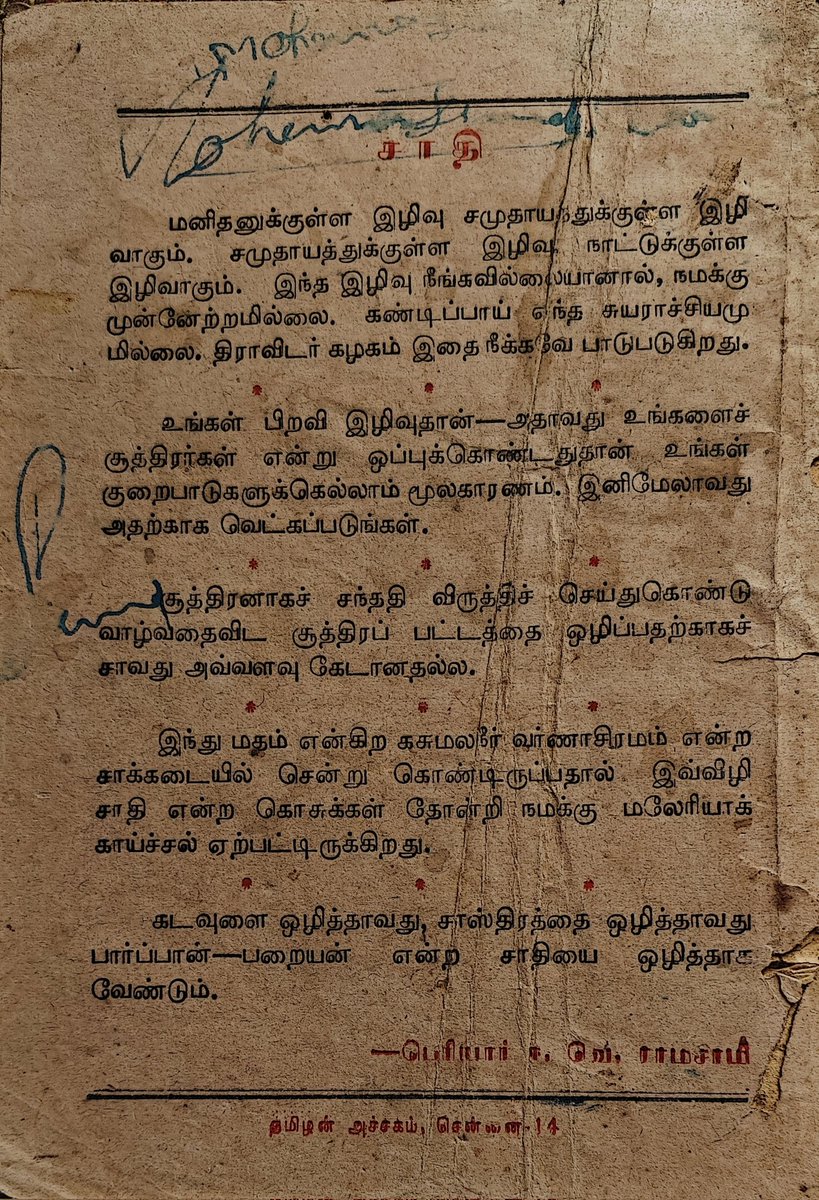 சாதி
மனிதனுக்குள்ள இழிவு சமுதாயத்துக்குள்ள இழி
வாகும். சமுதாயத்துக்குள்ள இழிவு நாட்டுக்குள்ள
இழிவாகும். இந்த இழிவு நீங்கவில்லையானால், நமக்கு
முன்னேற்றமில்லை. கண்டிப்பாய் எந்த சுயராச்சியமு
மில்லை. திராவிடர் கழகம் இதை நீக்கவே பாடுபடுகிறது.
உங்கள் பிறவி இழிவுதான்—அதாவது உங்களைச்
சூத்திரர்கள் என்று ஒப்புக்கொண்டதுதான் உங்கள்
குறைபாடுகளுக்கெல்லாம் மூலகாரணம். இனிமேலாவது
அதற்காக வெட்கப்படுங்கள்.
சூத்திரனாகச் சந்ததி விருத்திச் செய்துகொண்டு
வாழ்வதைவிட சூத்திரப் பட்டத்தை ஒழிப்பதற்காகச்
சாவது அவ்வளவு கேடானதல்ல.
இந்து மதம் என்கிற கசுமலநீர் வர்ணாசிரமம் என்ற
சாக்கடையில் சென்று கொண்டிருப்பதால் இவ்விழி
சாதி என்ற கொசுக்கள் தோன்றி நமக்கு மலேரியாக்
காய்ச்சல் ஏற்பட்டிருக்கிறது.
கடவுளை ஒழித்தாவது, சாஸ்திரத்தை ஒழித்தாவது
பார்ப்பான்—பறையன் என்ற சாதியை ஒழித்தாக
வேண்டும்.
—பெரியார் ஈ. வெ. ராமசாமி
தமிழன் அச்சகம், சென்னை-14